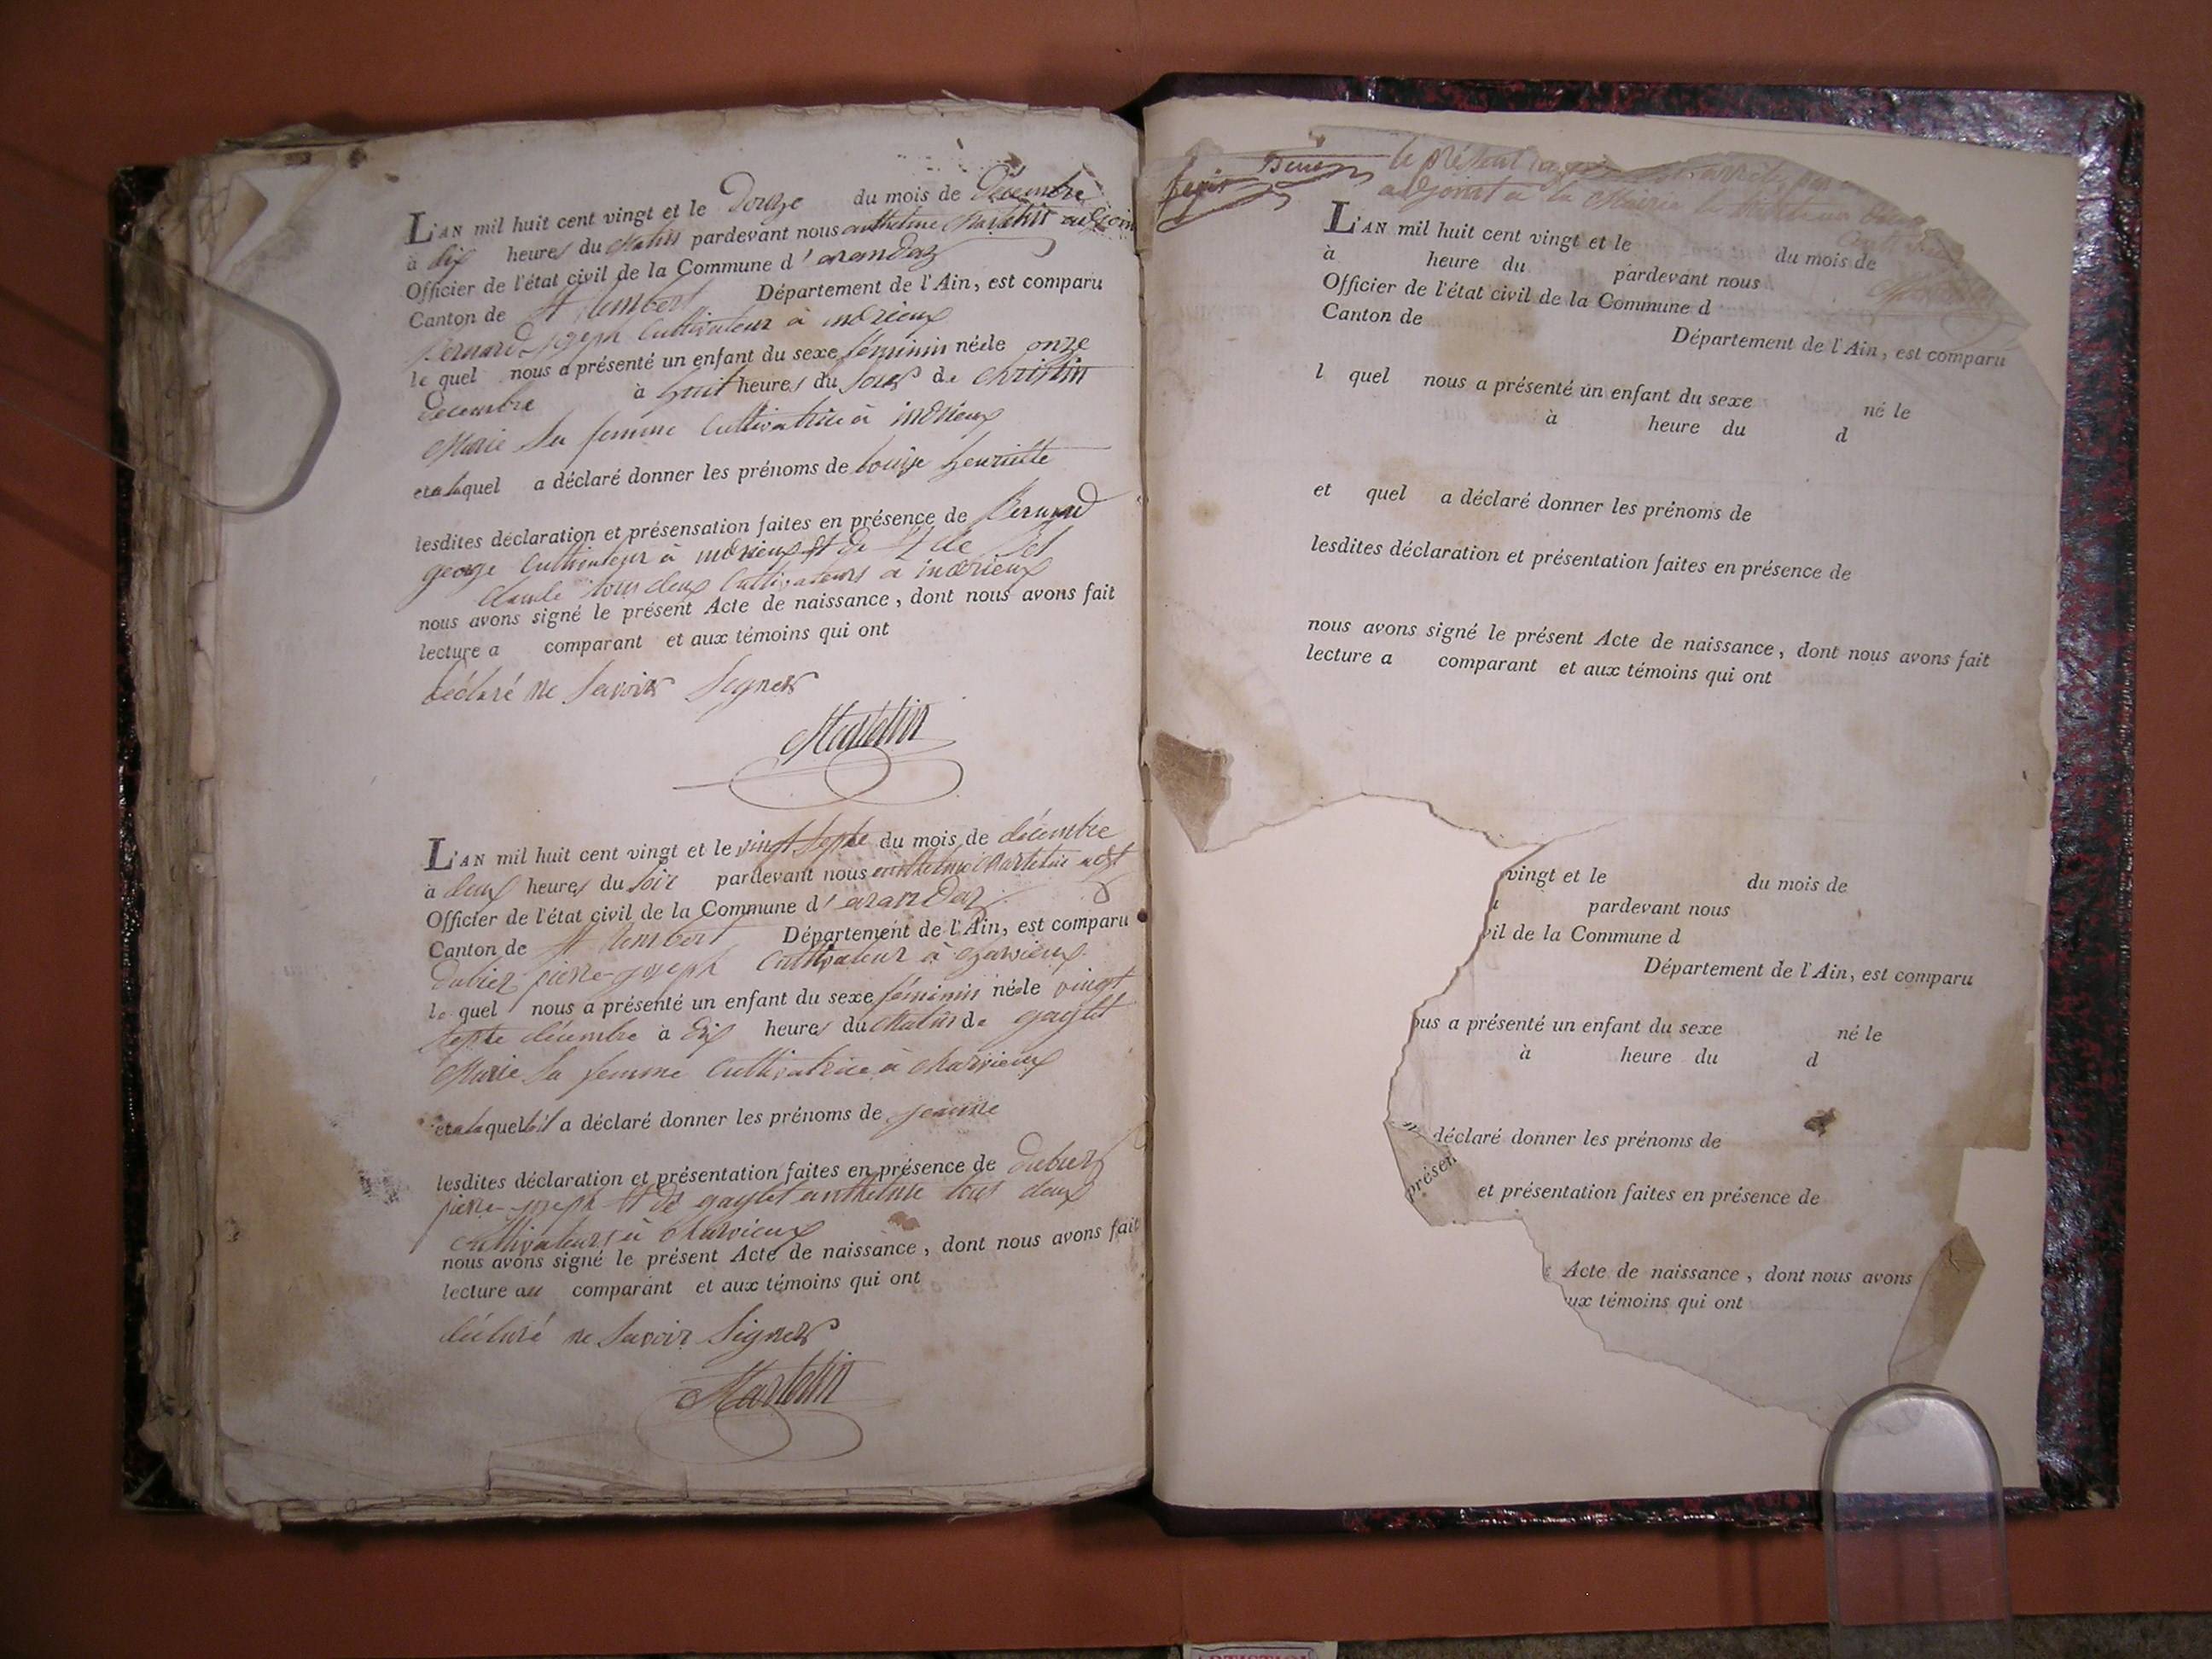 L'AN mil huit cent vingt et le Douze du mois de Décembre
à dix heures du Matin pardevant nous anthelme Martelin adjoin
Officier de l'état civil de la Commune d'arandaz
Canton de St rembert Département de l'Ain, est comparu
Bernard Joseph Cultivateur à indrieux
le quel nous a présenté un enfant du sexe féminin née le onze
Décembre à huit heures du Soir de Christin
Marie Sa femme Cultivatrice à indrieux
et a la quel a déclaré donner les prénoms de louise henriette
lesdites déclaration et présensation faites en présence de Bernard
george Cultivateur à indrieux et de
claude tous deux Cultivateurs a indrieux
nous avons signé le présent Acte de naissance, dont nous avons fait
lecture a comparant et aux témoins qui ont
déclaré ne Savoir Signer
Martelin
L'AN mil huit cent vingt et le vingt Septe du mois de décembre
à deux heures du Soir pardevant nous anthelme Martelin adjt
Officier de l'état civil de la Commune d'arandaz
Canton de St rembert Département de l'Ain, est comparu
Dubiez pierre-joseph Cultivateur à Charvieux
le quel nous a présenté un enfant du sexe féminin née le vingt
Septe décembre à Dix heures du Matin de gaylet
Marie Sa femme Cultivatrice à Charvieux
et a la quelle il a déclaré donner les prénoms de jeanne
lesdites déclaration et présentation faites en présence de Dubiez
pierre-joseph et de gaylet anthelme tous deux
Cultivateurs à Charvieux
nous avons signé le présent Acte de naissance, dont nous avons fait
lecture au comparant et aux témoins qui ont
déclaré ne Savoir Signer
Martelin
le présent
adjoint a la Mairie
L'AN mil huit cent vingt et le du mois de
à heure du pardevant nous
Officier de l'état civil de la Commune d
Canton de Département de l'Ain, est comparu
l quel nous a présenté un enfant du sexe né le
à heure du d
et quel a déclaré donner les prénoms de
lesdites déclaration et présentation faites en présence de
nous avons signé le présent Acte de naissance, dont nous avons fait
lecture a comparant et aux témoins qui ont
vingt et le du mois de
pardevant nous
vil de la Commune d
Département de l'Ain, est comparu
ous a présenté un enfant du sexe né le
à heure du d
déclaré donner les prénoms de
présen
et présentation faites en présence de
Acte de naissance, dont nous avons
ux témoins qui ont